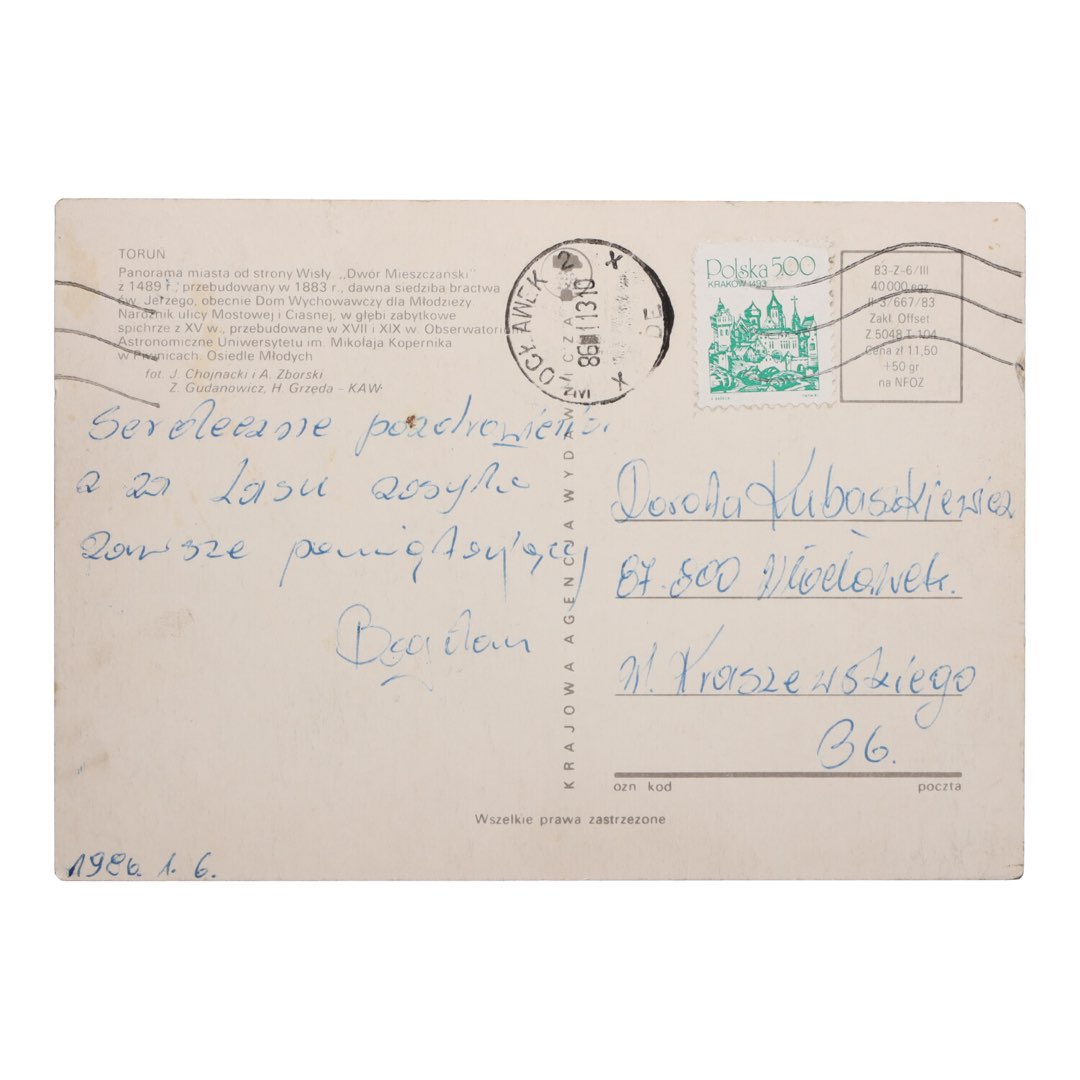 TORUŃ
Panorama miasta od strony Wisły. „Dwór Mieszczański"
z 1489 r., przebudowany w 1883 r., dawna siedziba bractwa
św. Jerzego, obecnie Dom Wychowawczy dla Młodzieży
Narożnik ulicy Mostowej i Ciasnej, w głębi zabytkowe
spichrze z XV w., przebudowane w XVII i XIX w. Obserwatorium
Astronomiczne Uniwersytetu im. Mikołaja Kopernika
w Piwnicach. Osiedle Młodych
fot. J. Chojnacki i A. Zborski
Z. Gudanowicz, H. Grzęda - KAW
Serdeczne pozdrowienia
z za Lasu zasyła
zawsze pamiętający
Bogdan
1986. 1. 6.
KRAJOWA AGENCJA WYDAWNICZA
Wszelkie prawa zastrzeżone
OCŁAWEK 2
86 11310
DE
Polska 500
KRAKÓW 1493
83-Z-6/III
40 000 egz.
II-3/667/83
Zakł. Offset
Z.5048 T-104
Cena zł 11,50
+50 gr
na NFOZ
Dorota Kubaszkiewicz
87-800 Włocławek.
ul. Kraszewskiego
36.
ozn kod poczta